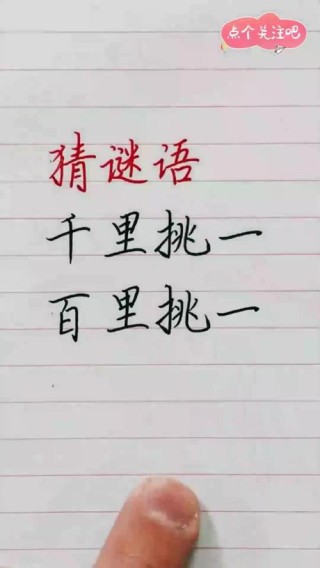 点个关注吧
猜谜语
千里挑一
百里挑一